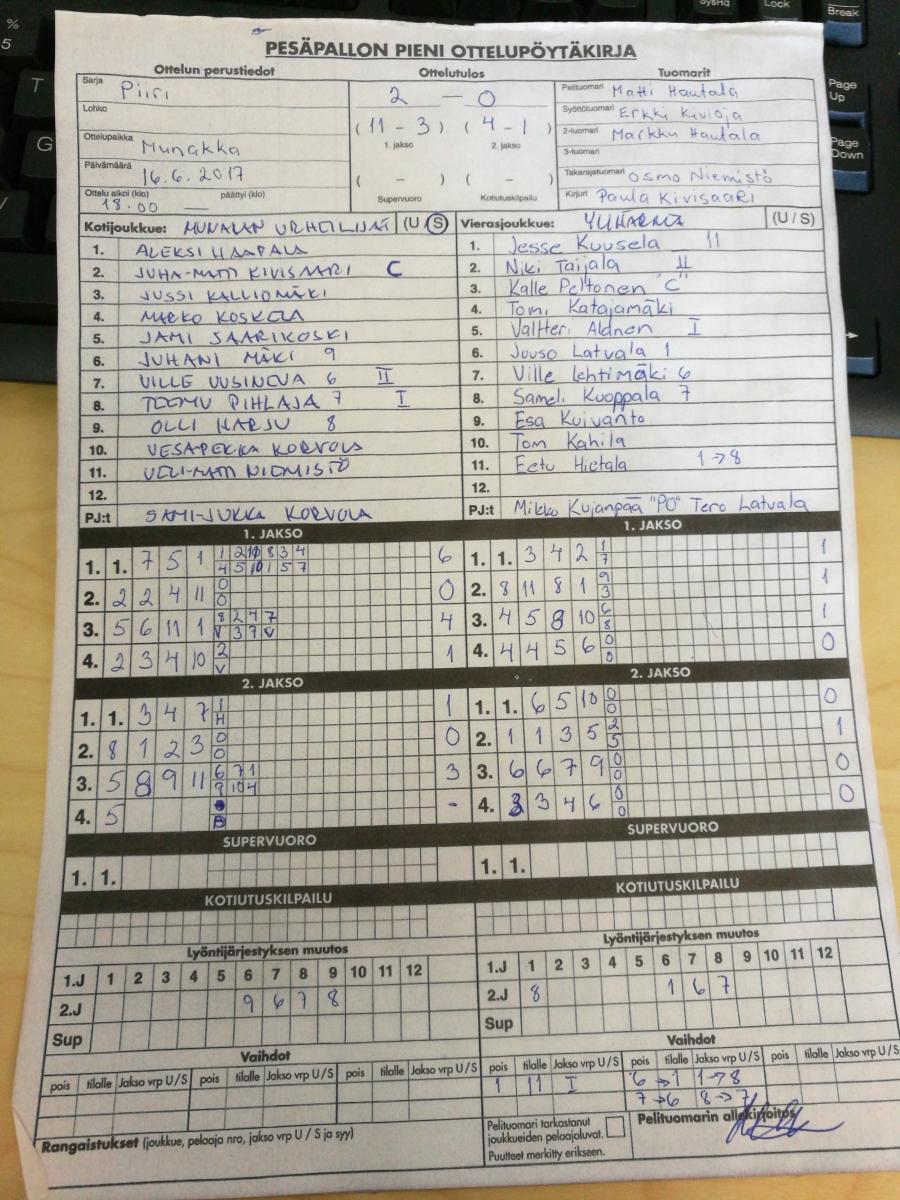 PESÄPALLON PIENI OTTELUPÖYTÄKIRJA
Ottelun perustiedot Ottelutulos Tuomarit
Sarja Piiri
Lohko
Ottelupaikka Munakka
Päivämäärä 16.6.2017
Ottelu alkoi (klo) päättyi (klo)
18.00 —
2 — 0
(11 - 3) (4 - 1)
1. jakso 2. jakso
( - ) ( - )
Supervuoro Kotiutuskilpailu
Pelituomari Matti Hautala
Syöttötuomari Erkki Kivioja
2-tuomari Markku Hautala
3-tuomari
Takarajatuomari Osmo Niemistö
Kirjuri Paula Kivisaari
Kotijoukkue: MUNAKAN URHEILIJAT (U/S)
1. ALEKSI HAAPALA
2. JUHA-MATTI KIVISAARI C
3. JUSSI KALLIOMÄKI
4. MARKO KOSKELA
5. JAMI SAARIKOSKI
6. JUHANI MÄKI 9
7. VILLE UUSINEVA 6 II
8. TEEMU PIHLAJA 7 I
9. OLLI HARJU 8
10. VESAPEKKA KORVOLA
11. VELI-MATTI NIEMISTÖ
12.
PJ:t SAMI-JUKKA KORVOLA
Vierasjoukkue: YLIHÄRMÄ (U/S)
1. Jesse Kuusela 11
2. Niki Taijala II
3. Kalle Peltonen "C"
4. Tomi Katajamäki
5. Valtteri Alanen I
6. Juuso Latvala 1
7. Ville Lehtimäki 6
8. Sameli Kuoppala 7
9. Esa Koivanto
10. Tom Kahila
11. Eetu Hietala 1→8
12.
PJ:t Mikko Kujanpää "PO" Tero Latvala
1. JAKSO
1. 1. 7 5 1 1 2 10 8 3 4 6
4 5 10 1 5 7
2. 2 2 4 11 0 0
0
3. 5 6 11 1 8 2 4 7 4
V 3 7 V
4. 2 3 4 10 2 1
V
1. JAKSO
1. 1. 3 4 2 1 1
7
2. 8 11 8 1 9 1
3
3. 4 5 8 10 6 1
8
4. 4 4 5 6 0 0
0
2. JAKSO
1. 1. 3 4 7 1 1
H
2. 8 1 2 3 0 0
0
3. 5 8 9 11 6 7 1 3
9 10 4
4. 5 -
2. JAKSO
1. 1. 6 5 10 0 0
0
2. 1 1 3 5 2 1
5
3. 6 6 7 9 0 0
0
4. 3 3 4 6 0 0
0
SUPERVUORO
1. 1.
SUPERVUORO
1. 1.
KOTIUTUSKILPAILU
KOTIUTUSKILPAILU
Lyöntijärjestyksen muutos
1.J 1 2 3 4 5 6 7 8 9 10 11 12
2.J 9 6 7 8
Sup
Lyöntijärjestyksen muutos
1.J 1 2 3 4 5 6 7 8 9 10 11 12
2.J 8 1 6 7
Sup
Vaihdot
pois tilalle Jakso vrp U/S pois tilalle Jakso vrp U/S pois tilalle Jakso vrp U/S
Vaihdot
pois tilalle Jakso vrp U/S pois tilalle Jakso vrp U/S pois tilalle Jakso vrp U/S
1 11 I 6→1 1→8
7→6 8→7
Rangaistukset (joukkue, pelaaja nro, jakso vrp U / S ja syy)
Pelituomari tarkastanut
joukkueiden pelaajaluvat.
Puutteet merkitty erikseen.
Pelituomarin allekirjoitus